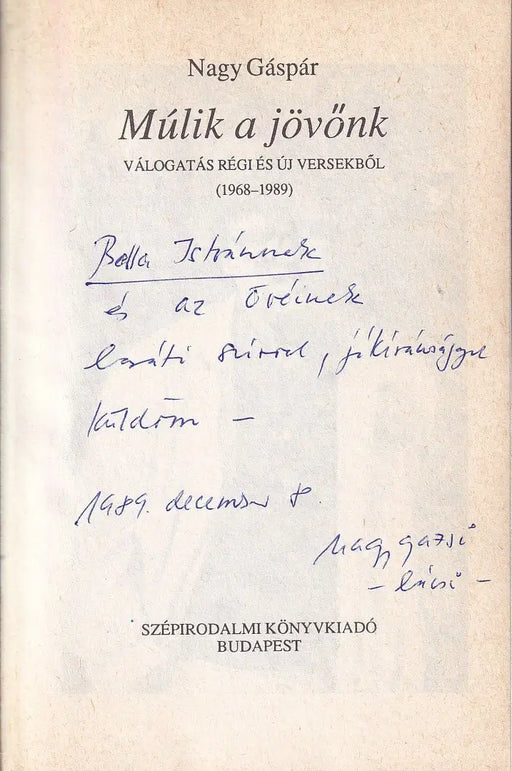 Nagy Gáspár
Múlik a jövőnk
VÁLOGATÁS RÉGI ÉS ÚJ VERSEKBŐL
(1968–1989)
Bella Istvánnak
és az övéinek
baráti szívvel, jókívánsággal
küldöm –
1989. december 8.
Nagy gazsi
SZÉPIRODALMI KÖNYVKIADÓ
BUDAPEST